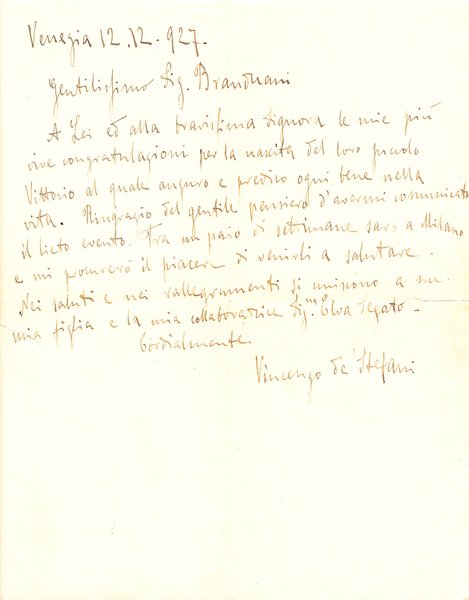 Venezia 12.12.927.
Gentilissimo Sig. Brandmani
A Lei ed alla bravissima Signora le mie più
vive congratulazioni per la nascita del loro piccolo
Vittorio al quale auguro e predico ogni bene nella
vita. Ringrazio del gentile pensiero d'avermi comunicato
il lieto evento. Tra un paio di settimane sarò a Milano
e mi procurerò il piacere di venirli a salutare.
Nei saluti e nei rallegramenti si uniscono a me
mia figlia e la mia collaboratrice Sig.na Elva Segato-
Cordialmente
Vincenzo de' Stefani